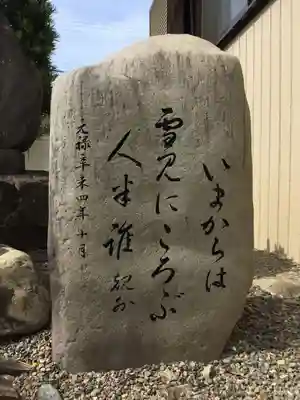 いまからは
雪見にころぶ
人半誰 規外
元禄辛未四年十月